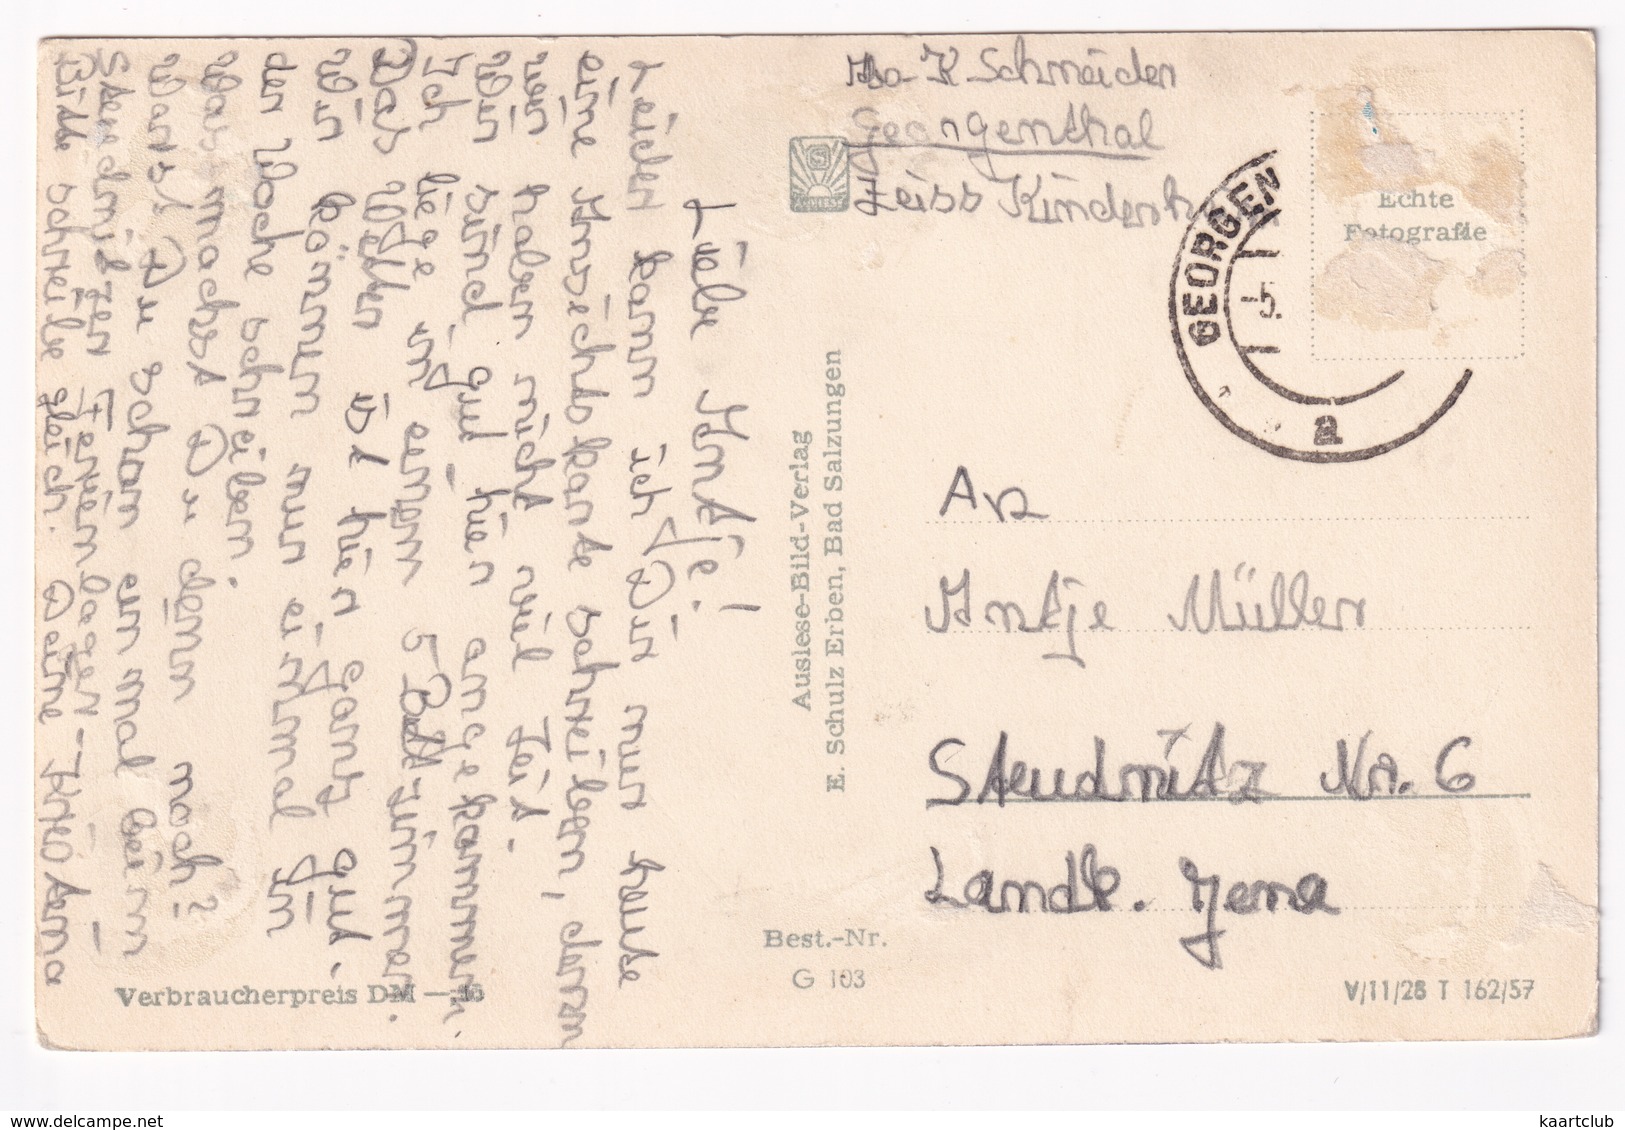 Liebe Antje!
Leider kann ich Dir nur heute
eine Ansichtskarte schreiben, denn
wir haben nicht viel Zeit.
Wir sind gut hier angekommen.
Ich liege im einem 5 Bett-zimmer.
Das Wetter ist hier ganz gut.
Wir können nur einmal in
der Woche schreiben.
Was machst Du denn noch?
Warst Du schon einmal beim
Steudnitzer Ferienlager
Bitte schreibe gleich. Deine
K. Schneider
Georgenthal
Zeiss Kinder
GEORGEN
-5.
a
Echte
Fotografie
S
Auslese-Bild-Verlag
E. Schulz Erben, Bad Salzungen
An
Antje Müller
Steudnitz Nr. 6
Landk. Jena
Best.-Nr.
G 103
Verbraucherpreis DM —.15
V/11/28 T 162/57
kaartclub
delcampe.net